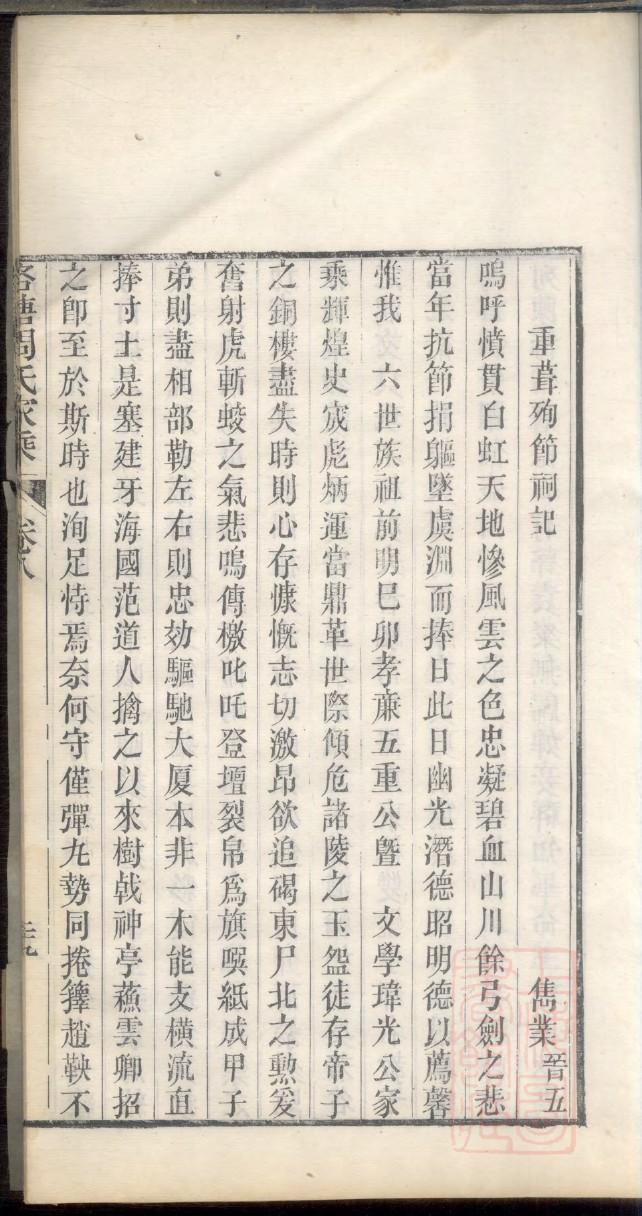 重葺殉節祠記
雋業晉五
嗚呼憤貫白虹天地慘風雲之色忠凝碧血山川餘弓劍之悲
當年抗節捐軀墜虞淵而捧日此日幽光潛德昭明德以薦馨
惟我 六世族祖前明巳卯孝亷五重公曁 文學瑋光公家
乘輝煌史宬彪炳運當鼎革世際傾危諸陵之玉盌徒存帝子
之銅樓盡失時則心存慷慨志切激昂欲追碣東尸北之勲爰
奮射虎斬蛟之氣悲鳴傳檄叱吒登壇裂帛爲旗噀紙成甲子
弟則盡相部勒左右則忠効驅馳大厦本非一木能支橫流直
捧寸土是塞建牙海國范道人擒之以來樹戟神亭蘓雲卿招
之卽至於斯時也洵足恃焉奈何守僅彈丸勢同捲籜趙鞅不
周氏家乘 卷八